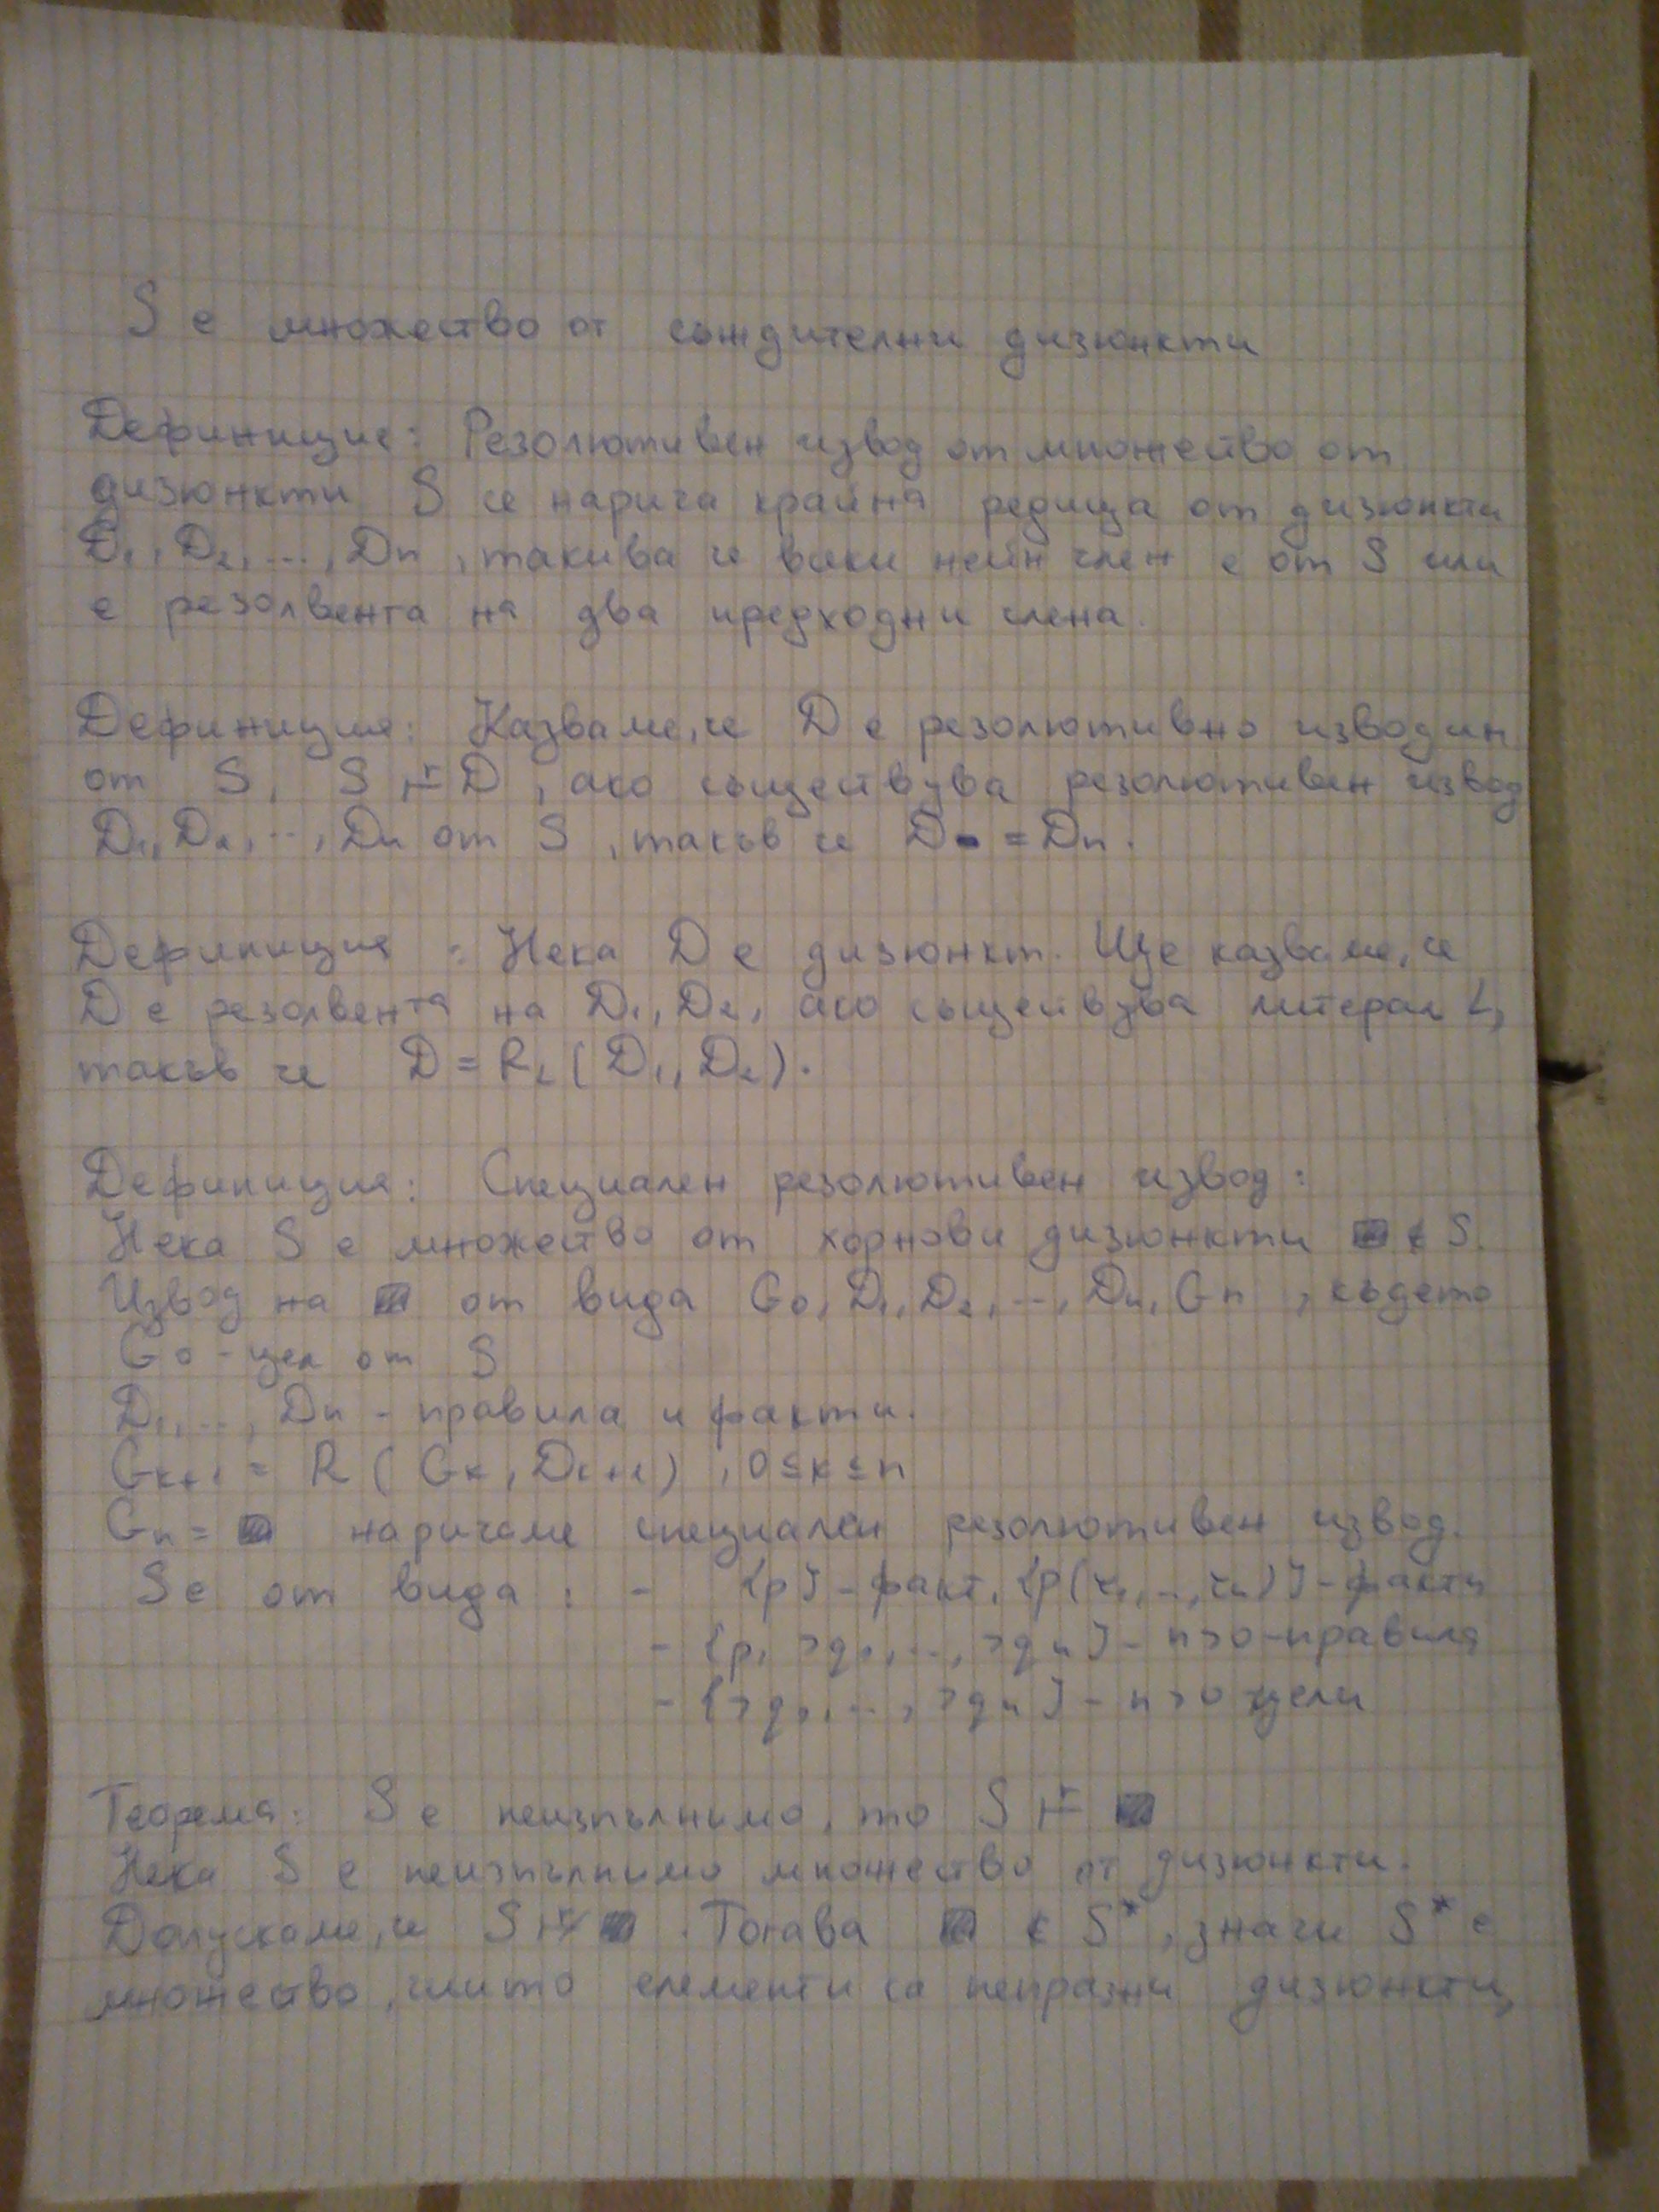 S е множество от съждителни дизюнкти
Дефиниция: Резолютивен извод от множество от
дизюнкти S се нарича крайна редица от дизюнкти
D₁, D₂, ..., Dn , такива че всеки неин член е от S или
е резолвента на два предходни члена.
Дефиниция: Казваме, че D е резолютивно изводим
от S, S ⊢ʳ D , ако съществува резолютивен извод
D₁, D₂, ..., Dn от S , такъв че D = Dn .
Дефиниция : Нека D е дизюнкт. Ще казваме, че
D е резолвента на D₁, D₂, ако съществува литерал L,
такъв че D = R_L ( D₁, D₂ ) .
Дефиниция: Специален резолютивен извод :
Нека S е множество от хорнови дизюнкти ■ ∉ S.
Извод на ■ от вида G₀, D₁, D₂, ..., Dn, Gn , където
G₀ - цел от S
D₁, ..., Dn - правила и факти.
Gk+1 = R ( Gk , Dk+1 ) , 0 ≤ k ≤ n
Gn = ■ наричаме специален резолютивен извод.
S е от вида : - {p} - факт, {p(τ₁, ..., τn)} - факти
- {p, ¬q₁, ..., ¬qn} - n>0 - правила
- {¬q₁, ..., ¬qn} - n>0 цели
Теорема: S е неизпълнимо, то S ⊢ʳ ■
Нека S е неизпълнимо множество от дизюнкти.
Допускаме, че S ⊬ʳ ■ . Тогава ■ ∉ S* , значи S* е
множество, чиито елементи са непразни дизюнкти,